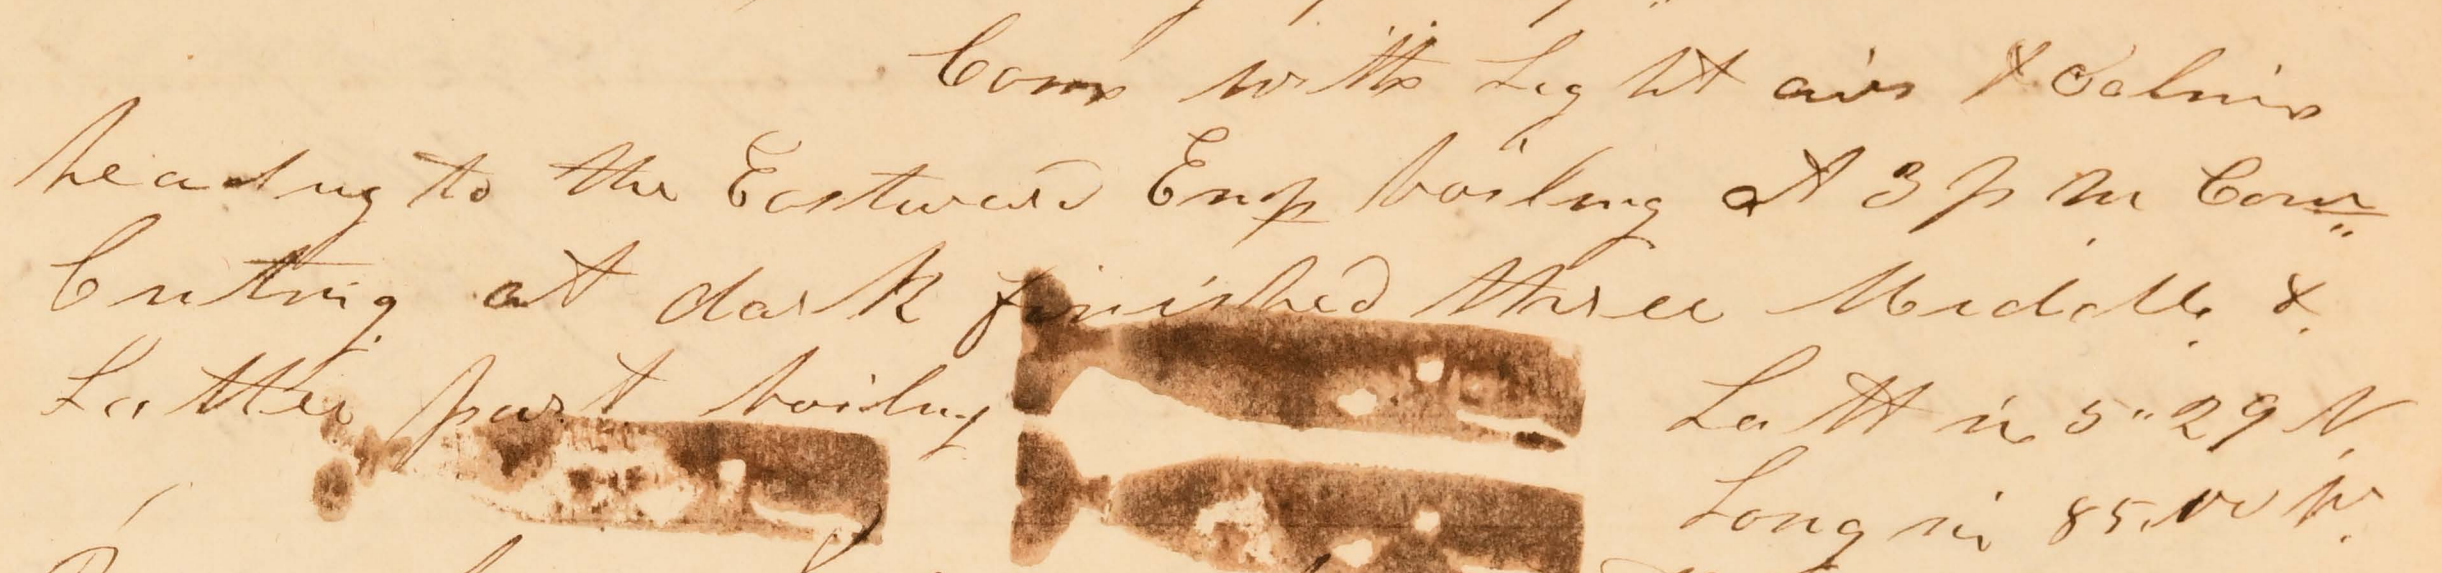 Com with Light airs & Calms
heading to the Eastward Emp boiling At 3 p m Com
Cutting at dark finished three Middle &
Latter part boiling
Latt in 5"29 N.
Long in 85.00 W.